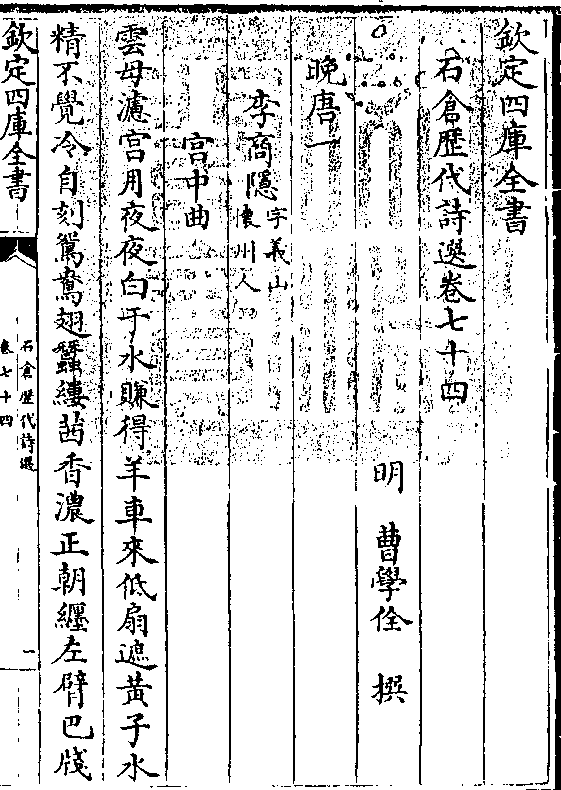 欽定四庫全書
石倉歴代詩選卷七十四
明 曹學佺 撰
晚唐一
李商隱字義山懷州人
宮中曲
雲母濾宮月夜夜白于水賺得羊車來低扇遮黃子水
精不覺冷自刻鴛鴦翅蠶縷茜香濃正朝纏左臂巴牋
欽定四庫全書
石倉歷代詩選
卷七十四
一